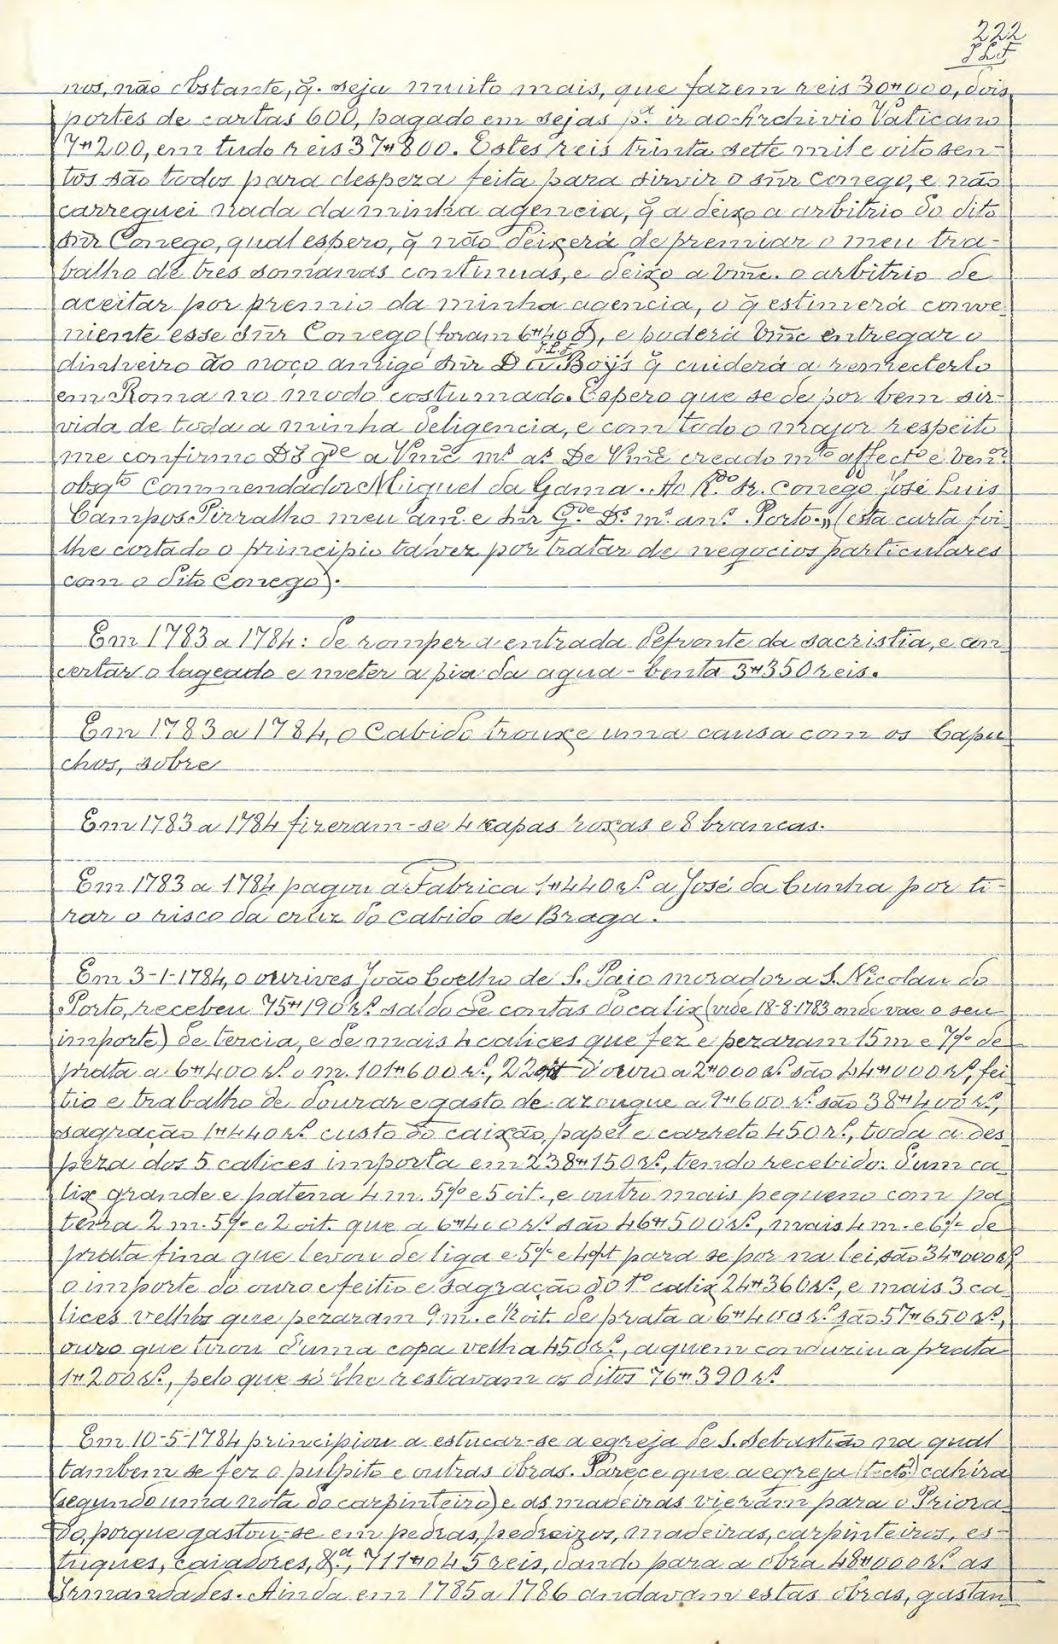 222
J L F
nos, não obstante, q̃. seja muito mais, que fazem reis 30#000, dois
portes de cartas 600, pagado em sejas pª ir ao Archivio Vaticano
7#200, em tudo reis 37#800. Estes reis trinta sette mil e oitosen-
tos são todos para despeza feita para sirvir o sñr Conego, e não
carreguei nada da minha agencia, q̃ a deixo a arbitrio do dito
sñr Conego, qual espero, q̃ não deixerá de premiar o meu tra-
balho de tres somanas continuas, e deixo a Vmce. o arbitrio de
aceitar por premio da minha agencia, o q̃ estimerá conve
niente esse sñr Conego (foram 6#400), e poderá Vmce entregar o
dinheiro ao noço amigo sñr D Boijs q̃ cuiderá a remecterlo
em Roma no modo costumado. Espero que se dê por bem sir-
vida de toda a minha deligencia, e com todo o major respeito
me confirmo Ds gde a Vmce ms as De Vmce creado mto affecto e venor
obsgto Commendador Miguel da Gama. Ao Rdo Sr. Conego José Luis
Campos Pirralho meu amo e sñr Gde Ds ms ans. Porto.,, (esta carta foi
lhe cortado o principio talvez por tratar de negocios particulares
com o dito Conego).
Em 1783 a 1784: de romper a entrada defronte da sacristia, e con
certar o lageado e meter a pia da agua-benta 3#350 reis.
Em 1783 a 1784, o Cabido trouxe uma causa com os Capu
chos, sobre
Em 1783 a 1784 fizeram-se 4 capas roxas e 8 brancas.
Em 1783 a 1784 pagou a Fabrica 1#440 rs. a José da Cunha por ti-
rar o risco da cruz do Cabido de Braga.
Em 3-1-1784, o ourives João Coelho de S. Paio morador a S. Nicolau do
Porto, recebeu 75#190 rs. saldo de contas do calix (vide 18-8-1783 onde vae o seu
importe) de tercia, e de mais 4 calices que fez e pezaram 15 m e 7/8 de
prata a 6#400 rs. o m. 101#600 rs., 22 oit d'ouro a 2#000 rs. são 44#000 rs., fei
tio e trabalho de dourar e gasto de azougue a 9#600 rs. são 38#400 rs.,
sagração 1#440 rs. custo do caixão, papel e carreto 450 rs., toda a des
peza dos 5 calices importa em 238#150 rs., tendo recebido: d'um ca
lix grande e patena 4 m. 5/8 e 5 oit., e outro mais pequeno com pa
tena 2 m. 5/8 e 2 oit. que a 6#400 rs. são 46#500 rs., mais 4 m. e 6/8 de
prata fina que levou de liga e 5/8 e 4 oit para se por na lei, são 34#000 rs.
o importe do ouro e feitio e sagração do 1º calix 24#360 rs., e mais 3 ca
lices velhos que pezaram 9 m. e ½ oit. de prata a 6#400 rs. são 57#650 rs.,
ouro que tirou d'uma copa velha 450 rs., a quem conduziu a prata
1#200 rs., pelo que só lhe restavam os ditos 76#390 rs.
Em 10-5-1784 principiou a estucar-se a egreja de S. Sebastião na qual
tambem se fez o pulpito e outras obras. Parece que a egreja (tecto?) cahira
(segundo uma nota do carpinteiro) e as madeiras vieram para o Priora
do, porque gastou-se em pedras, pedreiros, madeiras, carpinteiros, es-
tuques, caiadores, &ª, 711#045 reis, dando para a obra 48#000 rs. as
Irmandades. Ainda em 1785 a 1786 andavam estas obras, gastan